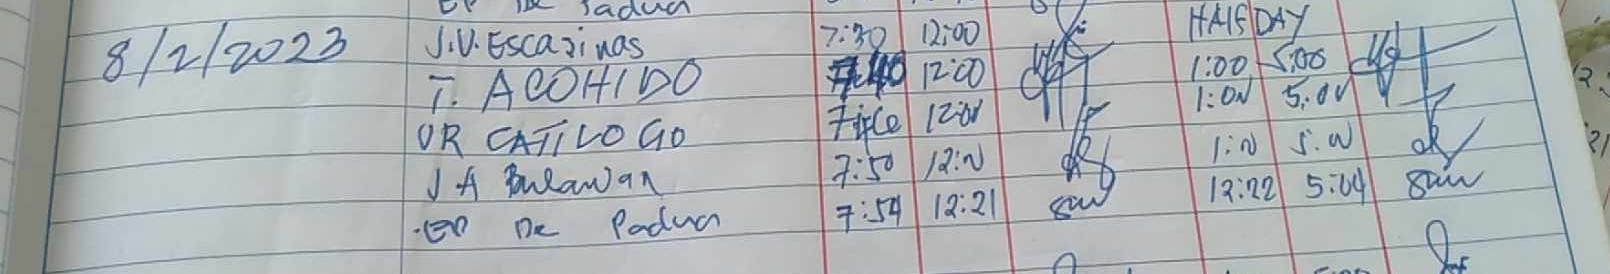 De Padua
8/2/2023 J.V. Escarinas 7:30 12:00 HALF DAY
T. ACOHIDO 7:40 12:00 1:00 5:00
VR CATILOGO 12:00 1:00 5:00
J A Bulawan 7:50 12:00 1:00 5:00
ED De Padua 7:54 12:21 12:22 5:04